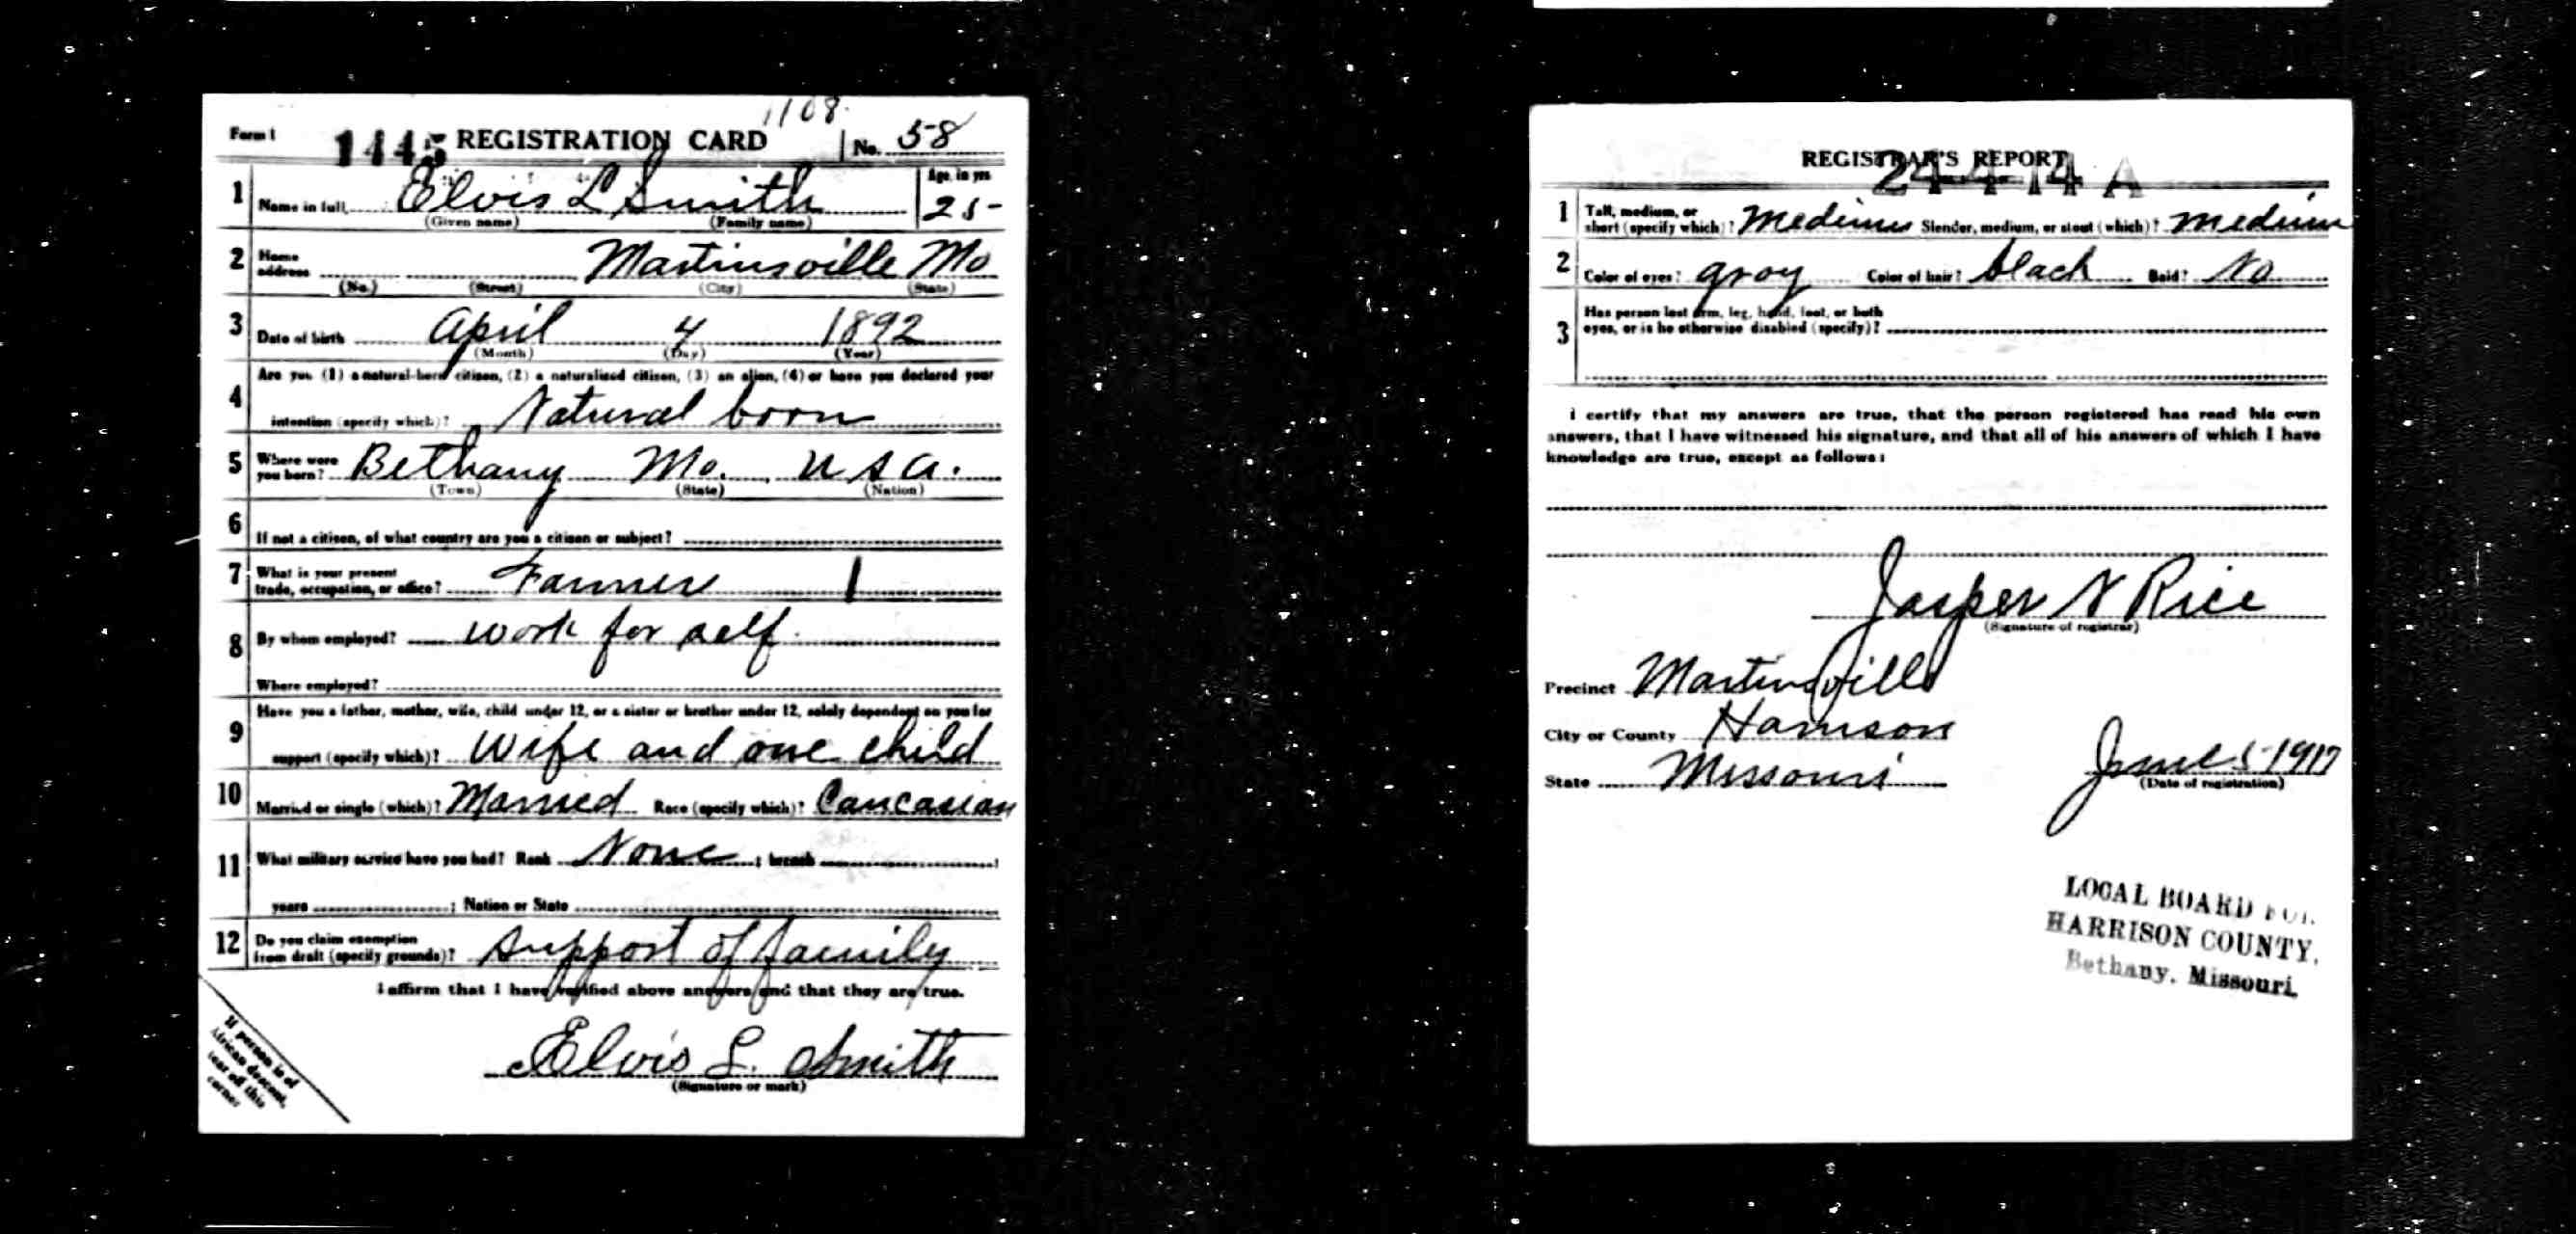 1108
Form 1 1445 REGISTRATION CARD No. 58
1 Name in full Elvis L Smith Age, in yrs 25
(Given name) (Family name)
2 Home address Martinsville Mo
(No.) (Street) (City) (State)
3 Date of birth April 4 1892
(Month) (Day) (Year)
4 Are you (1) a natural-born citizen, (2) a naturalized citizen, (3) an alien, (4) or have you declared your
intention (specify which)? Natural born
5 Where were you born? Bethany Mo. U S A.
(Town) (State) (Nation)
6 If not a citizen, of what country are you a citizen or subject?
7 What is your present trade, occupation, or office? Farmer
8 By whom employed? work for self
Where employed?
9 Have you a father, mother, wife, child under 12, or a sister or brother under 12, solely dependent on you for
support (specify which)? Wife and one child
10 Married or single (which)? Married Race (specify which)? Caucasian
11 What military service have you had? Rank None ; branch
years ; Nation or State
12 Do you claim exemption from draft (specify grounds)? support of family
I affirm that I have verified above answers and that they are true.
Elvis L. Smith
(Signature or mark)
If person is of
African descent,
tear off this
corner
REGISTRAR'S REPORT
24-4-14 A
1 Tall, medium, or short (specify which)? Medium Slender, medium, or stout (which)? medium
2 Color of eyes? gray Color of hair? black Bald? No
3 Has person lost arm, leg, hand, foot, or both
eyes, or is he otherwise disabled (specify)?
I certify that my answers are true, that the person registered has read his own
answers, that I have witnessed his signature, and that all of his answers of which I have
knowledge are true, except as follows:
Jasper N Rice
(Signature of registrar)
Precinct Martinsville
City or County Harrison
State Missouri June 5-1917
(Date of registration)
LOCAL BOARD FOR
HARRISON COUNTY,
Bethany, Missouri.